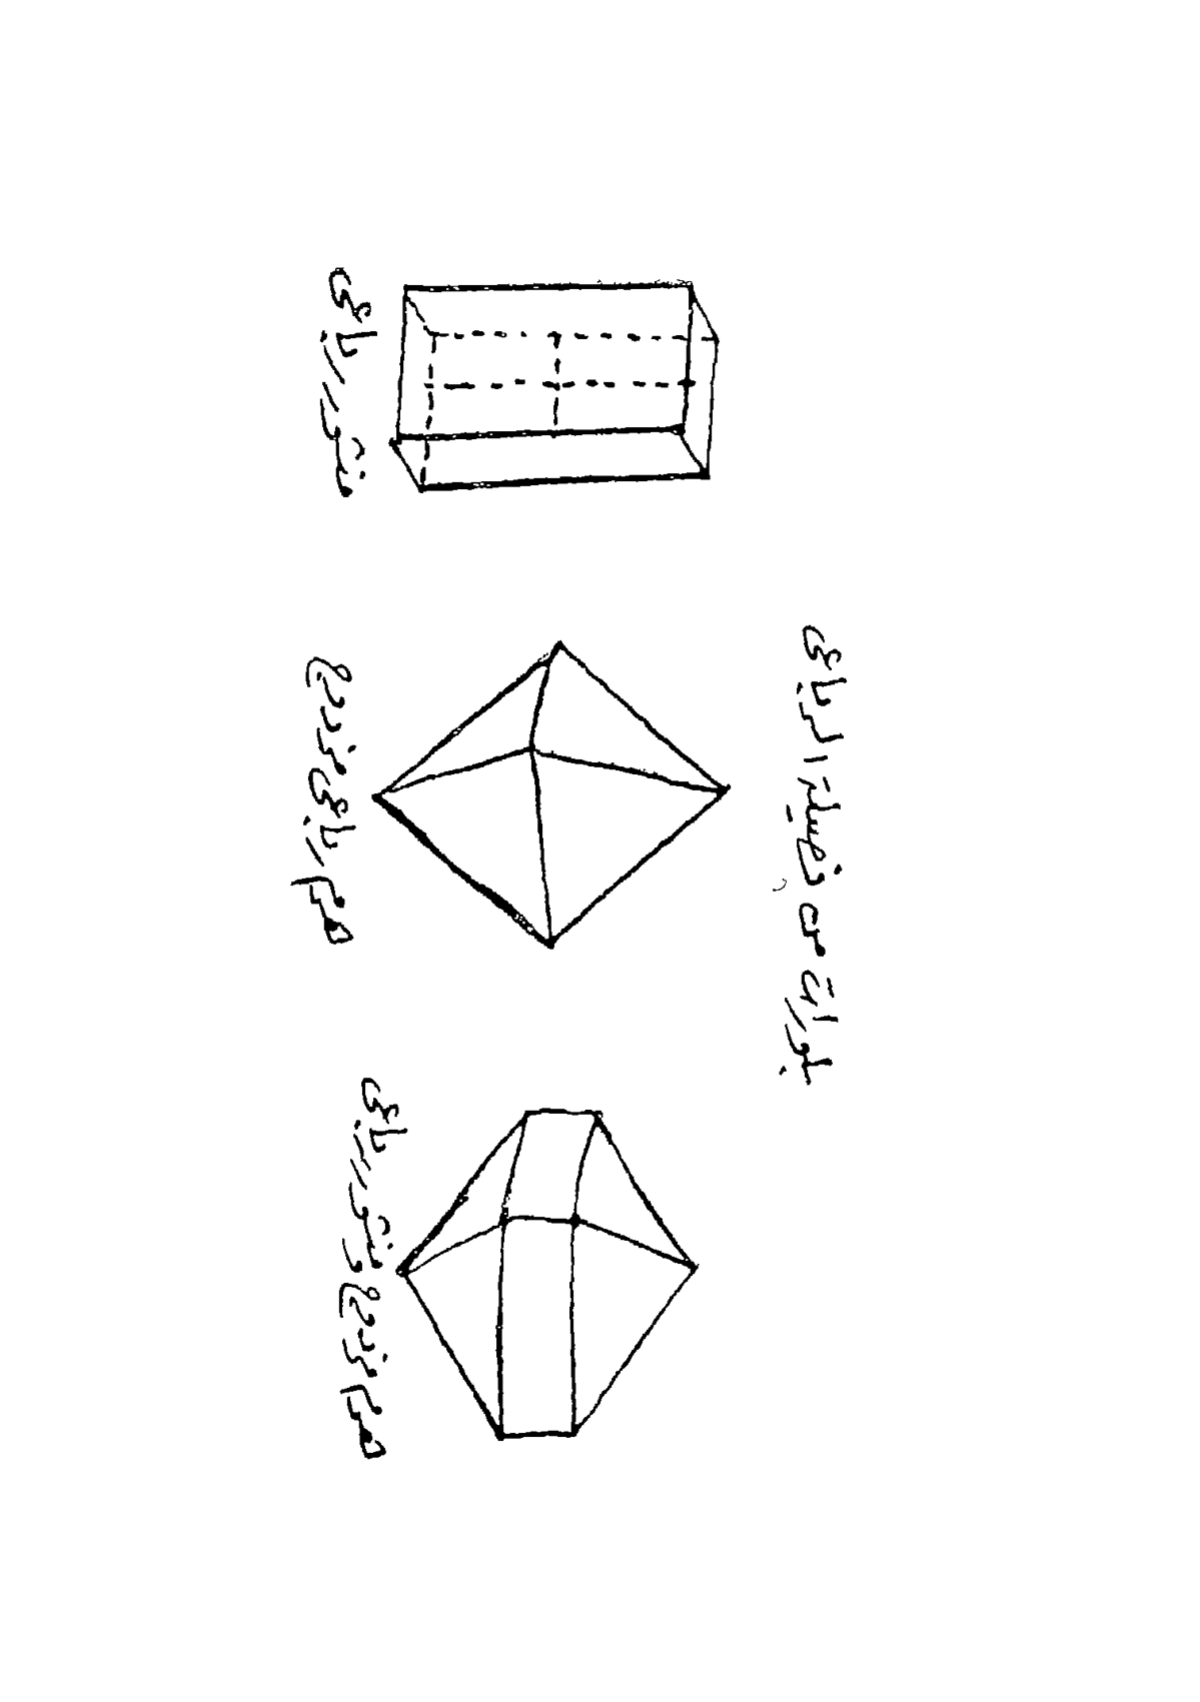 بلورات من فصيلة الرباعى
هرم مزدوج ومنشور رباعى
هرم رباعى مزدوج
منشور رباعى